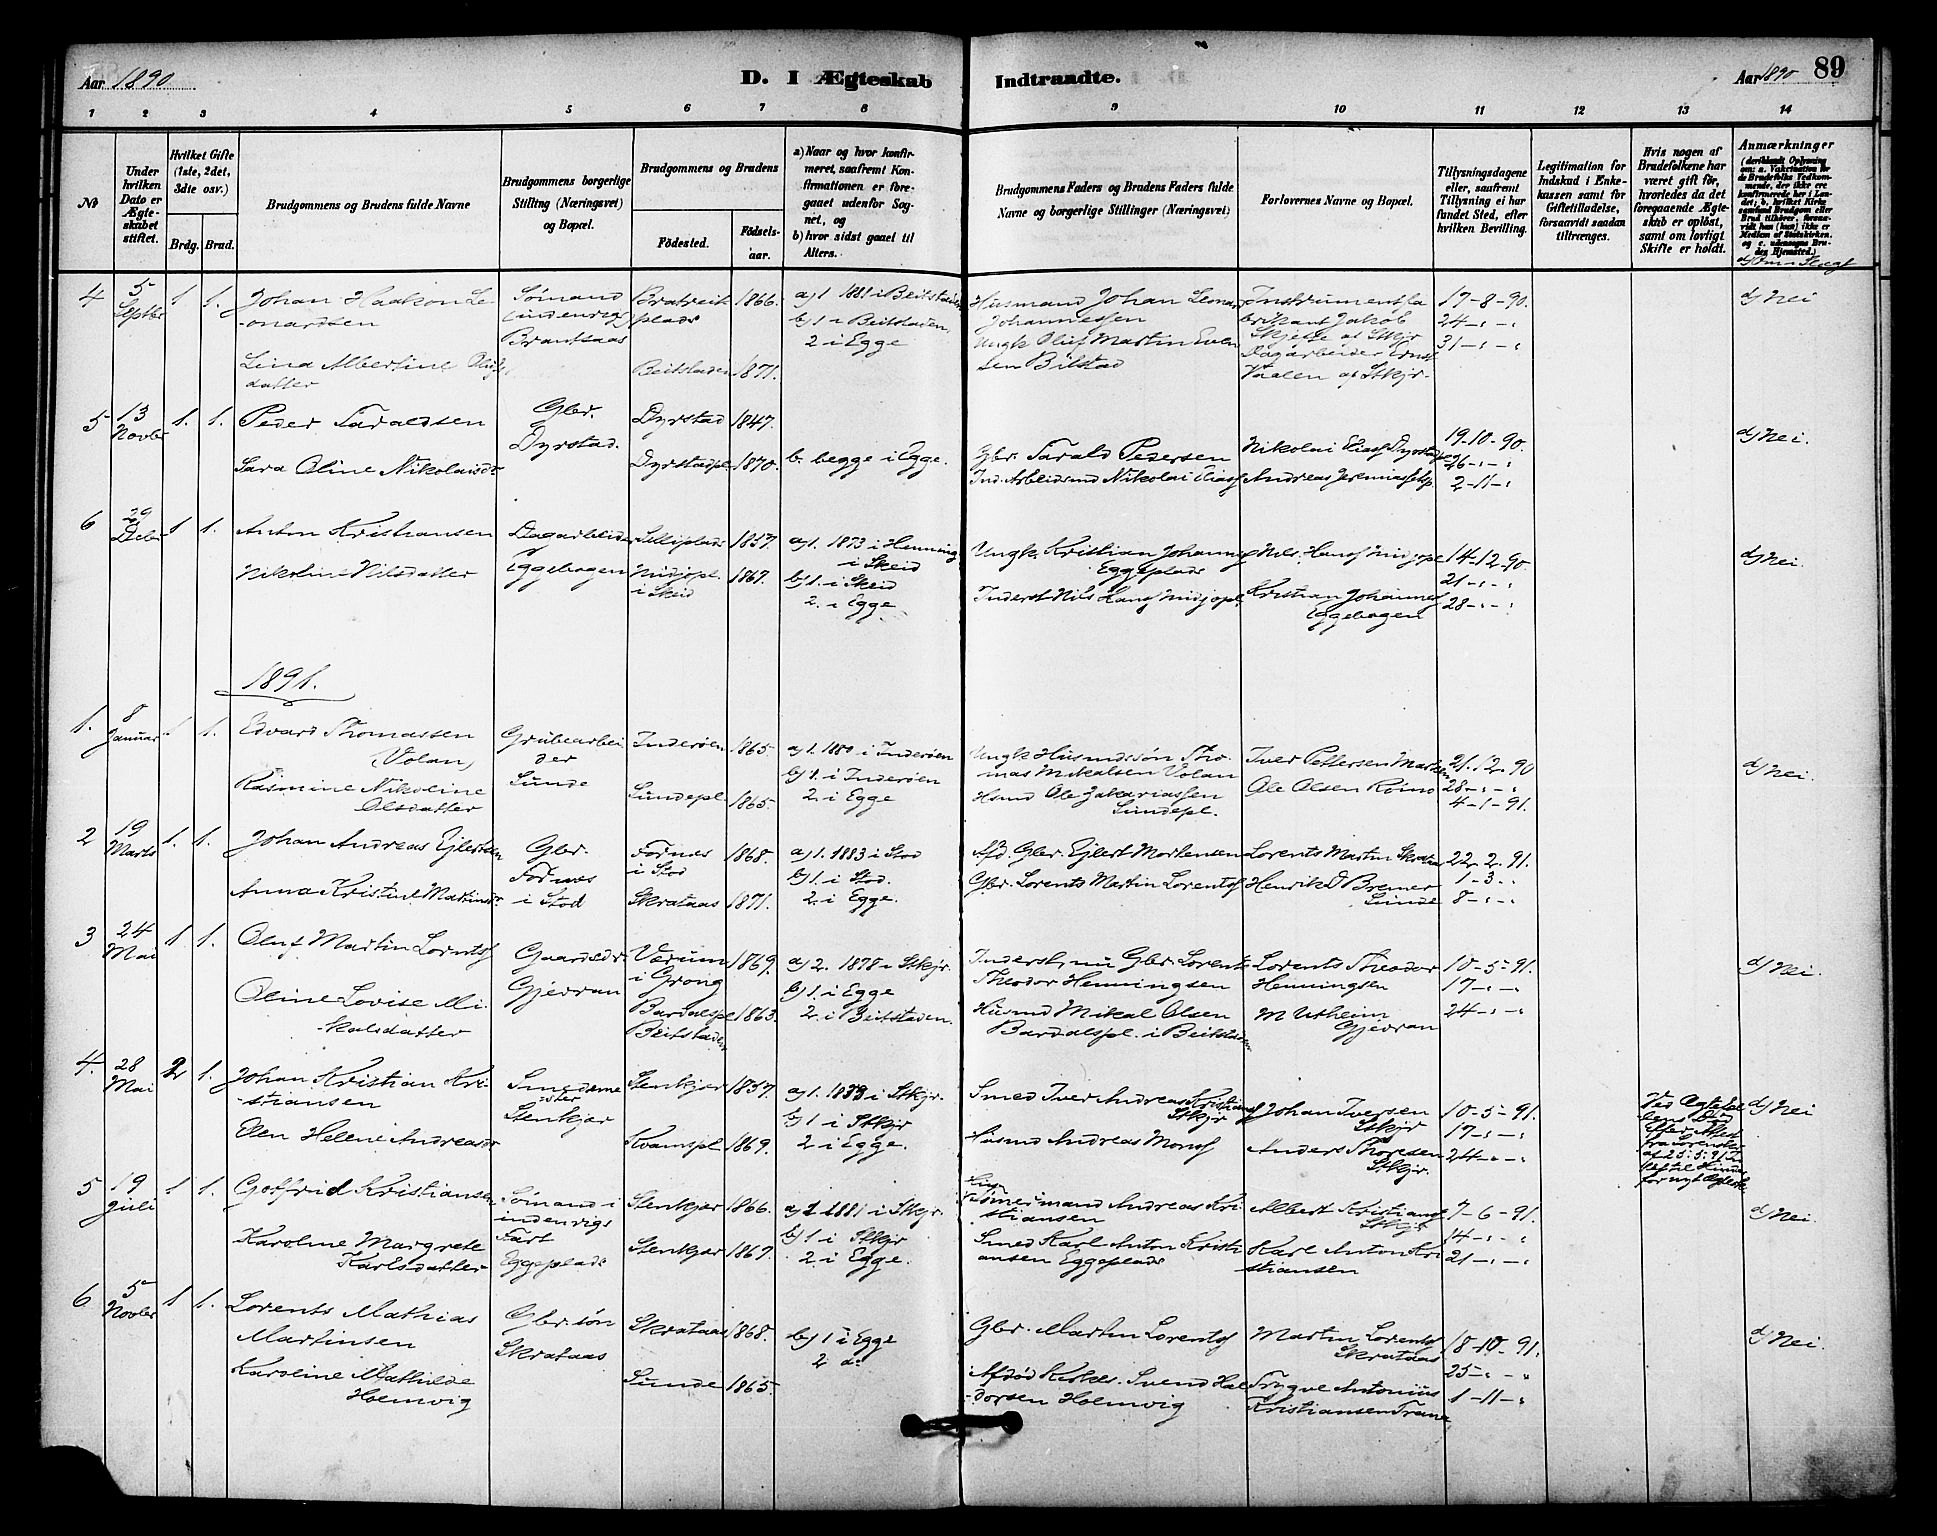 Aar 1890
D. I Ægteskab Indtraadte.
Aar 1890 89
1 2 3 4 5 6 7 8 9 10 11 12 13 14
No
Under hvilken Dato er Ægteskabet stiftet.
Hvilket Gifte (1ste, 2det, 3die osv.)
Brdg. Brud.
Brudgommens og Brudens fulde Navne
Brudgommens borgerlige Stilling (Næringsvei) og Bopæl.
Brudgommens og Brudens
Födested.
Födsels-aar.
a) Naar og hvor konfirmeret, saafremt Konfirmationen er foregaaet udenfor Sognet, og
b) hvor sidst gaaet til Alters.
Brudgommens Faders og Brudens Faders fulde Navne og borgerlige Stillinger (Næringsvei)
Forlovernes Navne og Bopæl.
Tillysningsdagene eller, saafremt Tillysning ei har fundet Sted, efter hvilken Bevilling.
Legitimation for Indskud i Enkekassen samt for Giftetilladelse, forsaavidt saadan tiltrænges.
Hvis nogen af Brudefolkene har været gift för, hvorledes da det foregaaende Ægteskab er oplöst, samt om lovligt Skifte er holdt.
Anmærkninger
4 5 Septbr 1 1.
Johan Haakon Le-
onardsen
Lina Albertine Oluf
datter
Sømand
(indenrigs)
Brandsaas
Bratreit
plads 1866.
Beitstaden 1871.
a) 1 1881 i Beitstaden
b) 1 i Beitstaden,
2 i Egge
Husmand Johan Leonard
Johannessen
Ungk Oluf Martin Even
sen Bilstad
Instrumentfa
brikant Jakob
Skjefte af Stkjr
Dagarbeider Ernst
Vaalen af Stkjr.
17-8-90.
24-"-"
31-"-"
d) Nei
5 13 Novbr 1. 1.
Peder Taraldsen
Sara Oline Nikolaisdr
Gbr.
Dyrstad.
Dyrstad 1847.
Dyrstadpl 1870.
b. begge i Egge.
Gbr. Tarald Pedersen
Ind. Arbeidsmd Nikolai Eliass
Nikolai Eliass Dyrstadpl
Andreas Jeremiass
19-10-90.
26-"-"
2-11-"
d) Nei.
6 29 Decbr 1 1.
Anton Kristiansen
Nikoline Nilsdatter
Dagarbeider
Eggebogen
Selliplads 1857.
Midjopl.
i Skeid 1867.
a) 1. 1873 i Henning
i Skeid
b) 1. i Skeid
2. i Egge.
Ungk. Kristian Johannes
Eggeplads
Inderst Nils Hansf Midjopl.
Nils Hansf Midjopl
Kristian Johannes
Eggebogen
14-12-90.
21-"-"
28-"-"
d) Nei.
1891.
1. 8 Januar 1 1.
Edvard Thomassen
(Volan)
Rasmine Nikoline
Olsdatter
Grubearbei
der
Sunde
Inderøen 1865.
Sundepl. 1865.
a) 1. 1880 i Inderøen
b) 1. i Inderøen
2. i Egge
Ungk Husmandssøn Tho-
mas Mikalsen Volan
Hsmd Ole Zakariassen
Sundepl.
Iver Pettersen Marken
Ole Olsen Rømo
21.12.90
28-"-"
4-1-91.
d) Nei.
2 19 Marts 1. 1.
Johan Andreas Ejlertsen
Anna Kristine Martinsdr
Gbr.
Fornes
i Stod
Fornes
i Stod 1868.
Skrataas 1871.
a) 1. 1883 i Stod
b) 1. i Stod.
2. i Egge.
Afd. Gbr. Ejlert Mortensen
Gbr. Lorents Martin Lorentsf
Lorents Martin Skrataas
Henrik D Bremer
Sunde
22.2.91.
1-3-"
8-"-"
3 24 Mai 1 1.
Oluf Martin Lorntsf
Oline Lovise Mi-
kalsdatter
Gaardbr.
Gjævran
Værum
i Grong 1869.
Bardalspl
Beitstaden 1863.
a) 2. 1878 i Stkjr.
b) 1. i Egge
2. i Beitstaden.
Inderst, nu Gbr. Lorents
Theodor Henningsen
Husmd Mikal Olsen
Bardalspl. i Beitstaden
Lorents Theodor
Henningsen
M Utheim
Gjævran
10-5-91.
17-"-"
24-"-"
d) Nei.
4. 28 Mai 2 1.
Johan Kristian Kri-
stiansen
Elen Helene Andreasdr
Smedeme
ster
Stenkjer
Stenkjær 1857.
Kvamspl 1869.
a) 1. 1873 i Stkjr.
b) 1 i Stkjr
2 i Egge.
Smed Iver Andreas Kristiansf
Stkjr
Husmd Andreas Monsf
Johan Iversen
Stkjr
Anders Thoresen
Stkjr.
10-5-91.
17-"-"
24-"-"
Ved
Død
efter Attest
fra
af 25-5-91 In
tet til Hinder
for nyt Ægtesk.
d) Nei
5 19 Juli 1 1.
Gotfrid Kristiansen
Karoline Margrete
Karlsdatter
Sømand i
indenrigs
Fart
Eggeplads
Stenkjær 1866.
Stenkjær 1867.
a) 1 1881 i Stkjr.
b) 1 i Stkjr
2. i Egge.
Tømmermand Andreas Kri
stiansen
Smed Karl Anton Kristi
ansen Eggeplads
Albert Kristiansf
Stkjr
Karl Anton Kri
stiansen
7-6-91.
14-"-"
21-"-"
d) Nei.
6 5 Novbr 1 1.
Lorents Mathias
Martinsen
Karoline Mathilde
Holmvig
Gbr. søn
Skrataas
Skrataas 1868.
Sunde 1865.
b) 1 i Egge
2 do
Gbr. Martin Lorentsf
Afdød Kirkes. Svend Hal
dorsen Holmvig
Martin Lorentsf
Skrataas
Trygve Antonius
Kristiansen Trana
18-10-91.
25-"-"
1-11-"
d) Nei.